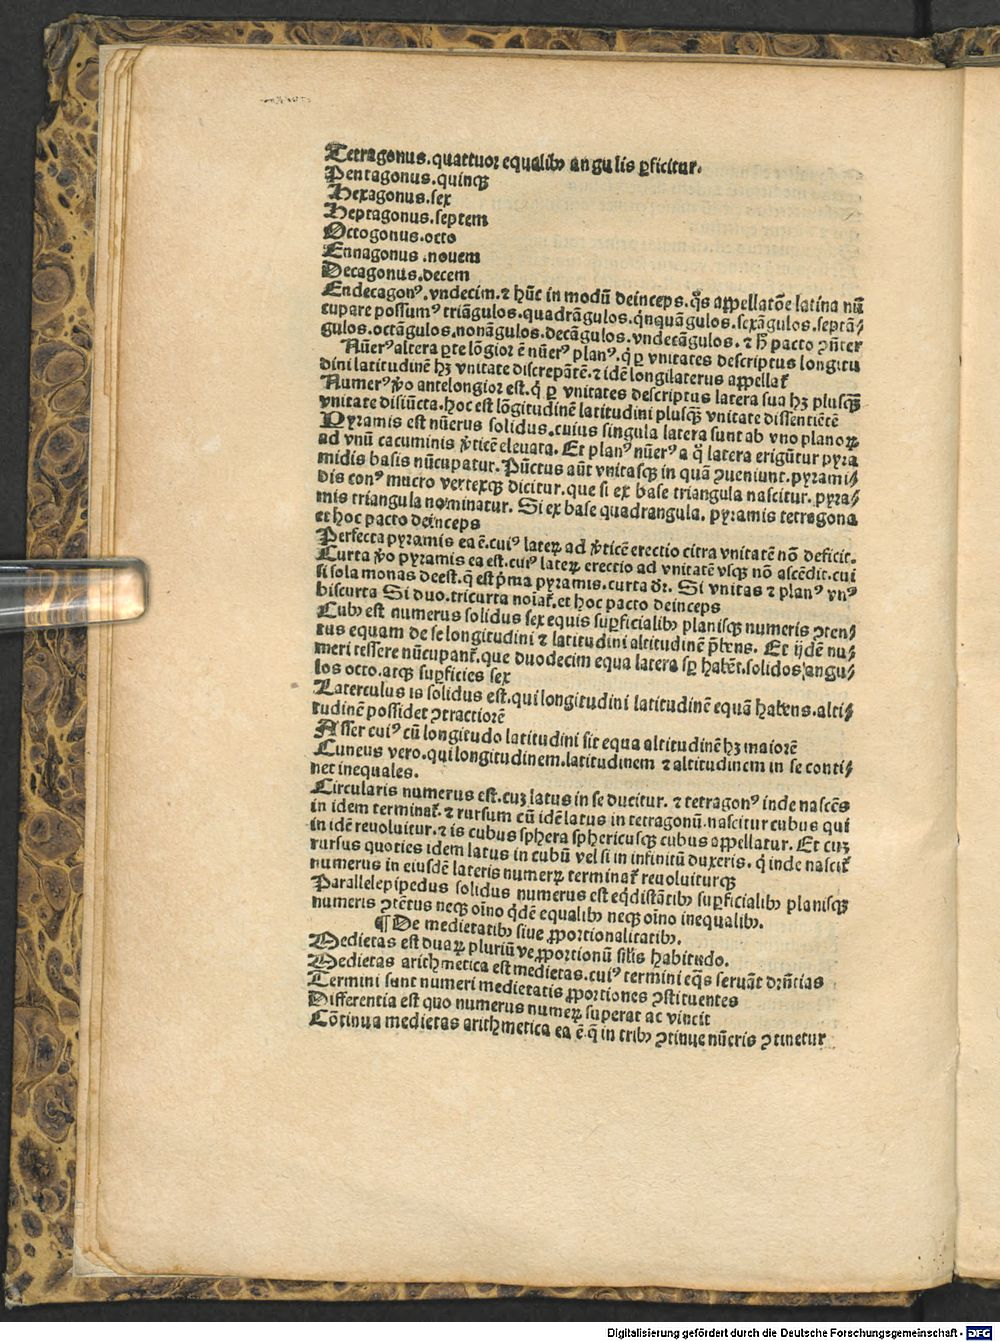 Tetragonus.quattuor equalibꝰ angulis ꝑficitur.
Pentagonus.quinqꝫ
Hexagonus.sex
Heptagonus.septem
Octogonus.octo
Ennagonus.nouem
Decagonus.decem
Endecagonꝰ.vndecim.⁊ hūc in modū deinceps.q̊s appellatōe latina nū
cupare possumꝰ triāgulos.quadrāgulos.qnquāgulos.sexāgulos.septā/
gulos.octāgulos.nonāgulos.decāgulos.vndecāgulos.⁊ h̄ pacto ꝯn̄ter
Nūerꝰ altera ꝑte lōgior ē nūerꝰ planꝰ.q̇ ꝑ vnitates descriptus longitu
dini latitudinē hꝫ vnitate discrepātē.⁊ idē longilaterus appellat᷑
Numerꝰ ꝟo antelongior est.q̇ ꝑ vnitates descriptus latera sua hꝫ plusqꝫ
vnitate disiūcta.hoc est lōgitudinē latitudini plusqꝫ vnitate dissentiētē
Pyramis est nūerus solidus.cuius singula latera sunt ab vno planoꝝ
ad vnū cacuminis ꝟticē eleuata. Et planꝰ nūerꝰ a q̊ latera erigūtur pyra
midis basis nūcupatur. Pūctus aūt vnitasqꝫ in quā ꝯueniunt.pyrami/
dis conꝰ mucro vertexqꝫ dicitur.que si ex base triangula nascitur. pyra/
mis triangula nominatur. Si ex base quadrangula. pyramis tetragona
et hoc pacto deinceps
Perfecta pyramis ea ē.cuiꝰ lateꝝ ad ꝟticē erectio citra vnitatē nō deficit.
Curta ꝟo pyramis ea est.cuiꝰ lateꝝ erectio ad vnitatē vsqꝫ nō ascēdit.cui
si sola monas deest.q̄ est pͥma pyramis.curta dr̄. Si vnitas ⁊ planꝰ vnꝰ
biscurta Si duo.tricurta noīat᷑.et hoc pacto deinceps
Cubꝰ est numerus solidus sex equis suꝑficialibꝰ planisqꝫ numeris ꝯten/
tus equam de se longitudini ⁊ latitudini altitudinē p̄bens. Et ijdē nu/
meri tessere nūcupant᷑.que duodecim equa latera sꝑ habēt.solidos angu/
los octo.atqꝫ suꝑficies sex
Laterculus is solidus est.qui longitudini latitudinē equā habens.alti/
tudinē possidet ꝯtractiorē
Asser cuiꝰ cū longitudo latitudini sit equa altitudinē hꝫ maiorē
Cuneus vero.qui longitudinem.latitudinem ⁊ altitudinem in se conti/
net inequales.
Circularis numerus est.cuꝫ latus in se ducitur. ⁊ tetragonꝰ inde nascēs
in idem terminat᷑.⁊ rursum cū idē latus in tetragonū.nascitur cubus qui
in idē reuoluitur.⁊ is cubus sphera sphericusqꝫ cubus appellatur. Et cuꝫ
rursus quoties idem latus in cubū vel si in infinitū duxeris. q̇ inde nascit᷑
numerus in eiusdē lateris numerꝝ terminat᷑ reuoluiturqꝫ
Parallelepipedus solidus numerus est eq̇distātibꝰ suꝑficialibꝰ planisqꝫ
numeris ꝯtētus neqꝫ oīno q̇dē equalibꝰ neqꝫ oīno inequalibꝰ.
¶ De medietatibꝰ siue ꝓportionalitatibꝰ.
Medietas est duaꝝ pluriū ve ꝓportionū silīs habitudo.
Medietas arithmetica est medietas.cuiꝰ termini eq̄s seruāt dr̄n̄tias
Termini sunt numeri medietatis ꝓportiones ꝯstituentes
Differentia est quo numerus numeꝝ superat ac vincit
Cōtinua medietas arithmetica ea ē q̄ in tribꝰ ꝯtinue nūeris ꝯtinetur
Digitalisierung gefördert durch die Deutsche Forschungsgemeinschaft - DFG